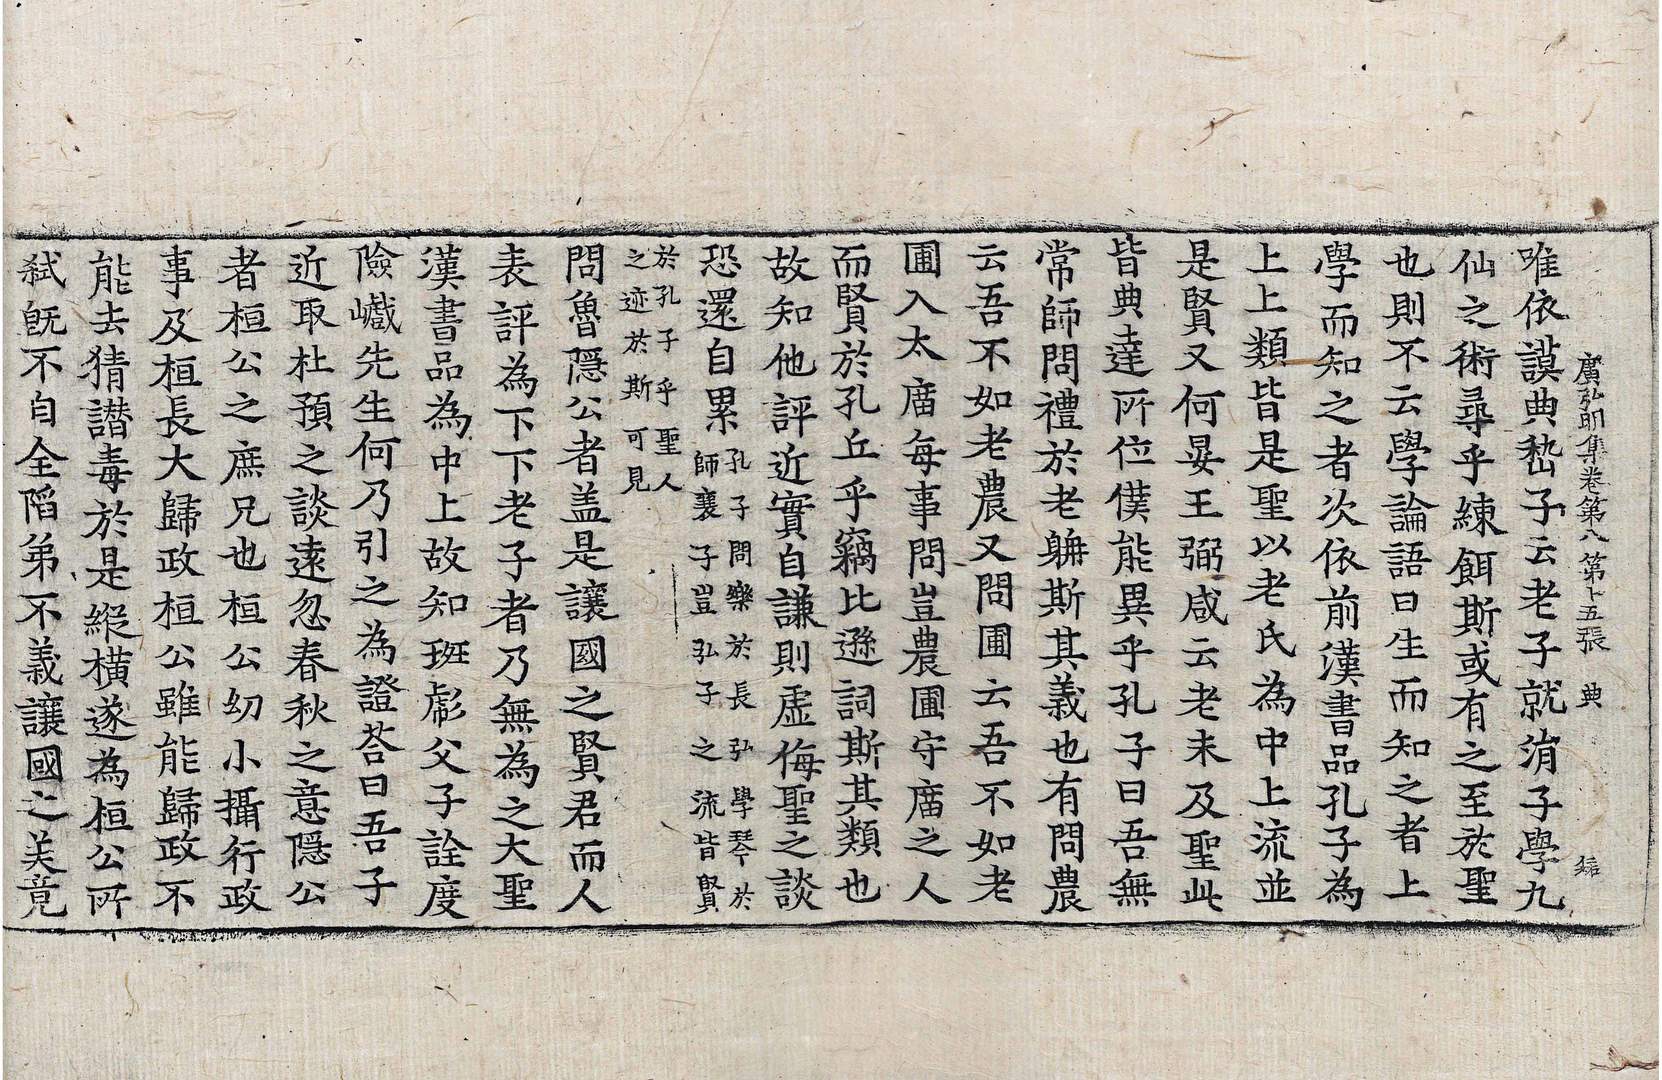 廣弘明集卷第八 第十五張 典
唯依謨典嵇子云老子就涓子學九
仙之術尋乎練餌斯或有之至於聖
也則不云學論語曰生而知之者上
學而知之者次依前漢書品孔子為
上上類皆是聖以老氏為中上流並
是賢又何晏王弼咸云老未及聖此
皆典達所位僕能異乎孔子曰吾無
常師問禮於老𦣱斯其義也有問農
云吾不如老農又問圃云吾不如老
圃入太廟每事問豈農圃守廟之人
而賢於孔丘乎竊比遜詞斯其類也
故知他評近實自謙則虛侮聖之談
恐還自累孔子問樂於長弘學琴於師襄子豈弘子之流皆賢
於孔子乎聖人之迹於斯可見
問魯隱公者盖是讓國之賢君而人
表評為下下老子者乃無為之大聖
漢書品為中上故知班彪父子詮度
險巇先生何乃引之為證荅曰吾子
近取杜預之談遠忽春秋之意隱公
者桓公之庶兄也桓公幼小攝行政
事及桓長大歸政桓公雖能歸政不
能去猜譖毒於是縱橫遂為桓公所
弑旣不自全陷弟不義讓國之美竟